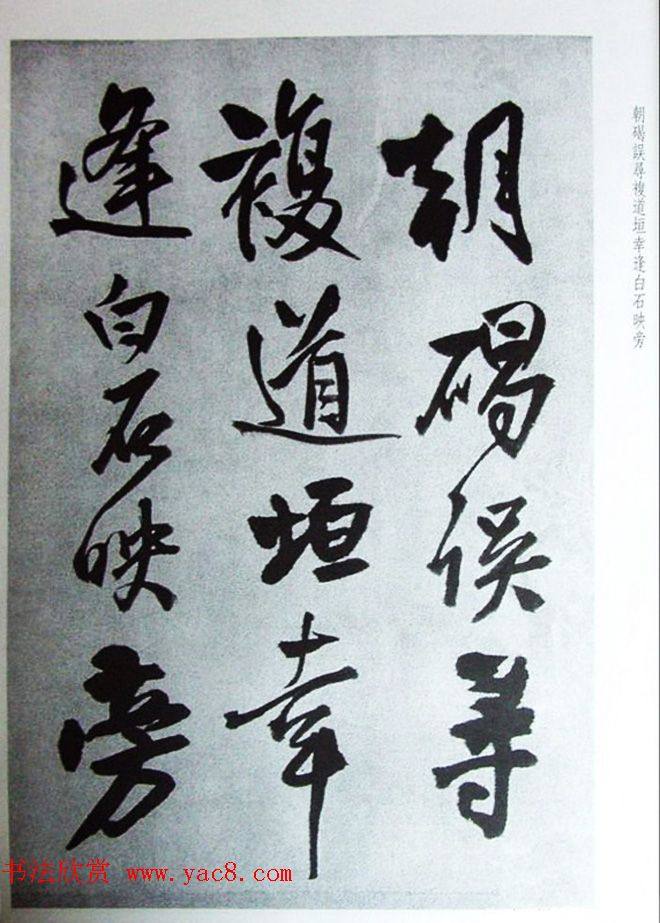 朝碣誤尋複道垣幸逢白石映旁
朝碣誤尋
複道垣幸
逢白石映旁
书法欣赏 www.yac8.com